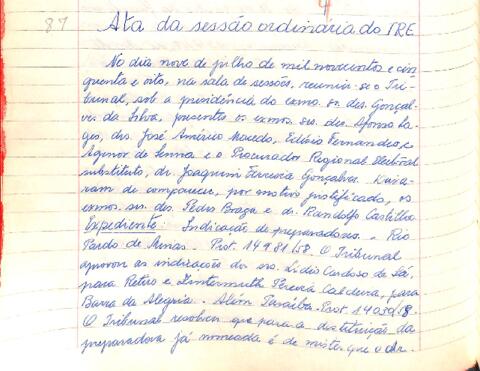 87
Ata da sessão ordinária do TRE
No dia nove de julho de mil novecentos e cin
quenta e oito, na sala de sessões, reuniu-se o Tri-
bunal, sob a presidência do exmo. sr. des. Gonçal-
ves da Silva, presentes os exmos. srs. des. Afonso La-
ges, drs. José Américo Macedo, Edésio Fernandes e
Agenor de Senna e o Procurador Regional Eleitoral
substituto, dr. Joaquim Ferreira Gonçalves. Deixa-
ram de comparecer, por motivo justificado, os
exmos. srs. des. Pedro Braga e dr. Randolfo
Expediente: Indicação de preparadores. - Rio
Pardo de Minas. Prot. 14981/58. O Tribunal
aprovou as indicações dos srs. Lídio Cardoso de Sá,
para Retiro e Pereira Caldeira, para
Barra da Alegria. - Além Paraíba. Prot. 14030/58.
O Tribunal resolveu que para a destituição da
preparadora já nomeada é de mister que o dr.